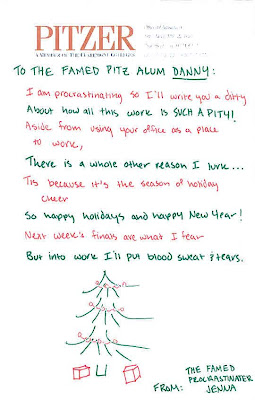 PITZER
A MEMBER OF THE CLAREMONT COLLEGES
TO THE FAMED PITZ ALUM DANNY:
I am procrastinating so I'll write you a ditty
About how all this work is SUCH A PITY!
Aside from using your office as a place
to work,
There is a whole other reason I lurk...
Tis because it's the season of holiday
cheer
So happy holidays and happy New Year!
Next week's finals are what I fear
But into work I'll put blood sweat & tears.
FROM: THE FAMED
PROCRASTINATER
JENNA